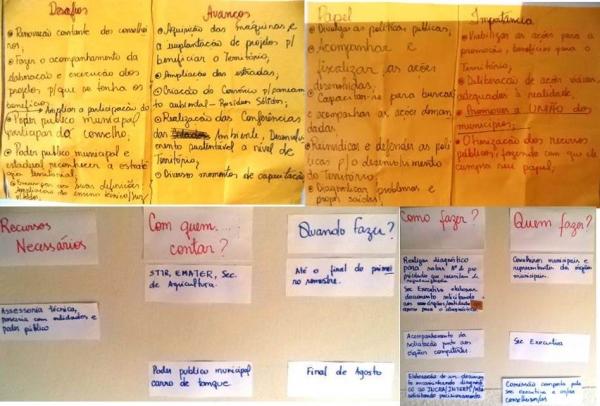 Desafios
Renovação constante dos conselhei
ros;
Fazer o acompanhamento da
elaboração e execução dos
projetos p/ que se tenha os
benefícios;
Ampliar a participação do
Poder público municipal
participar do conselho;
Poder público municipal e
estadual reconhecer a estraté
gia territorial
Avanços
Aquisição das máquinas e
a implantação de projetos p/
beneficiar o Território;
Ampliação das estradas;
Criação do Consórcio p/ saneamen
to ambiental - Resíduos Sólidos;
Realização das Conferências
das Ambiente, Desenvolvi
mento sustentável a nível de
Território;
Diversos momentos de capacitação
Papel
Divulgar as políticas públicas;
Acompanhar e
fiscalizar as ações
desenvolvidas;
Capacitar-se para buscar
e acompanhar as ações deman
dadas
Reivindicar e defender as políticas
p/ o desenvolvimento
do Território;
Diagnosticar problemas e
propor saídas;
Importância
Viabilizar as ações para a
promoção, benefícios para o
Território;
Deliberação de ações várias,
adequadas à realidade
Promover a UNIÃO dos
municípios;
Otimização dos recursos
públicos, fazendo com que ele
cumpra seu papel;
Recursos
Necessários
Assessoria técnica,
parceria com entidades e
poder público
Com quem....
contar?
STTR, EMATER, Sec.
de Agricultura.
Poder público municipal
carro de tanque
Quando Fazer?
Até o final do primei
ro semestre.
Final de Agosto
Como fazer?
Realizar diagnóstico
para saber Nº de pro
priedades que necessitam de
Sec Executiva elaborar
documento solicitando
aos órgãos/entidades
apoio para o diagnóstico
Acompanhamento da
solicitação junto aos
órgãos competentes
Elaboração de um docum
to encaminhando diagnós
co ao INCRA/INTERPI
solicitando posicionamento
Quem fazer?
Conselheiros municipais e
representantes dos órgãos
municipais.
Sec Executiva
Comissão composta pela
sec executiva e os/as
conselheiros/as